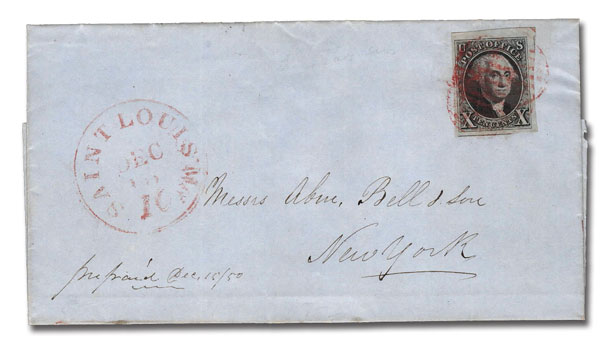 U S
POST OFFICE
X TEN CENTS X
SAINT LOUIS Mo.
DEC
10
Messrs Abm. Bell & Son
New York
prepaid Dec. 15/50